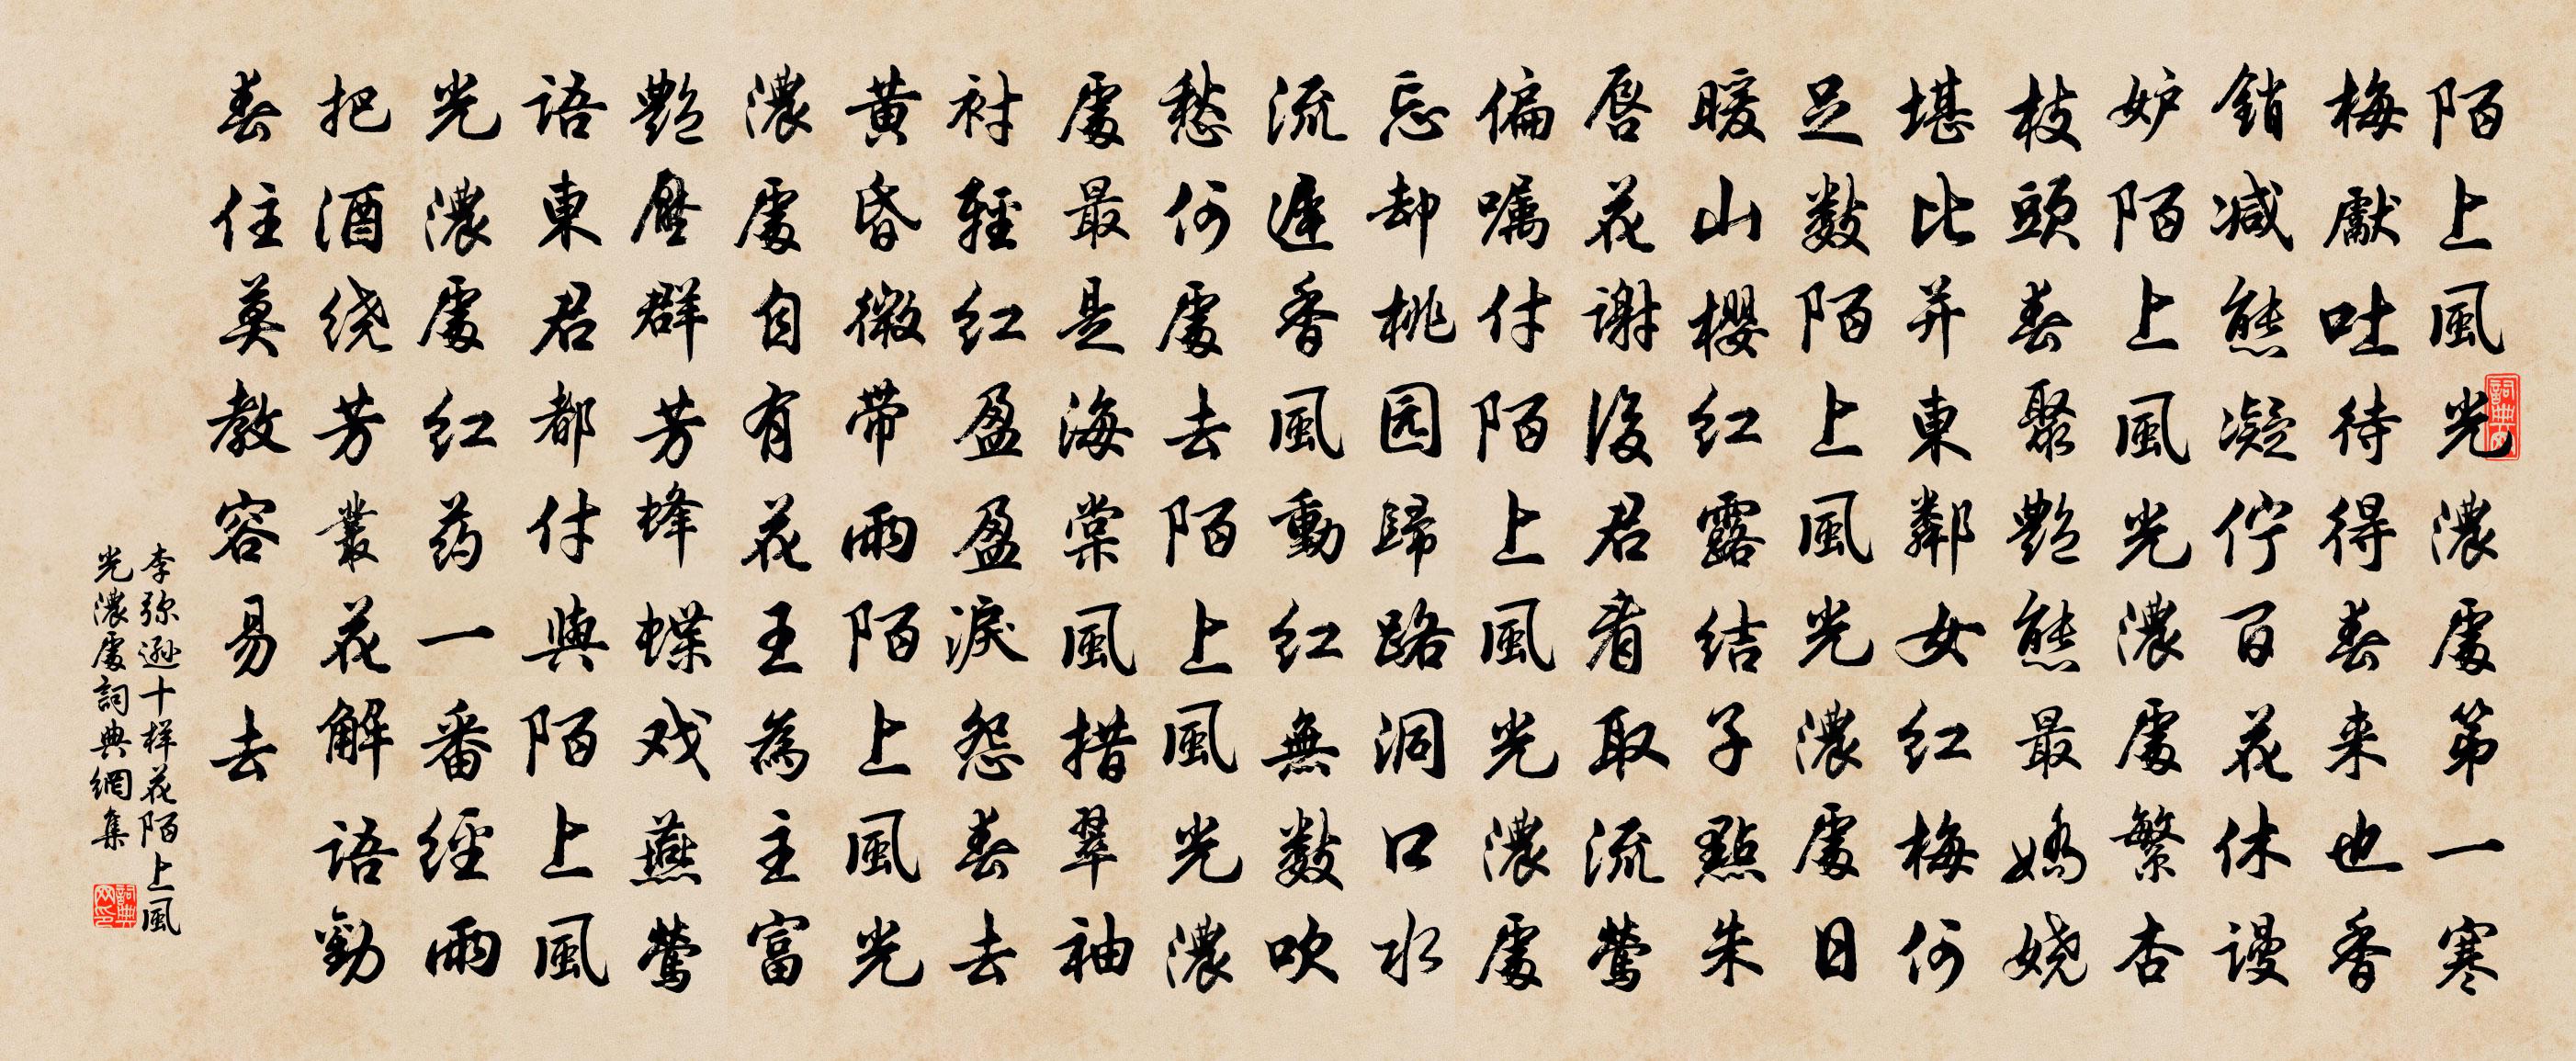 陌上風光濃處第一寒
梅獻吐待得春来也香
銷减態凝佇百花休謾
妒陌上風光濃處繁杏
枝頭春聚艷態最嬌嬈
堪比并東鄰女红梅何
足數陌上風光濃處日
暖山櫻红露結子點朱
唇花謝後君看取流莺
偏嘱付陌上風光濃處
忘却桃园歸路洞口水
流遲香風動红無數吹
愁何處去陌上風光濃
處最是海棠風措翠袖
衬輕红盈盈淚怨春去
黄昏微带雨陌上風光
濃處自有花王為主富
艷壓群芳蜂蝶戏燕莺
語東君都付與陌上風
光濃處红药一番經雨
把酒绕芳叢花解語勸
春住莫教容易去
李弥遜十样花陌上風
光濃處詞典網集
詞典网
詞典网印